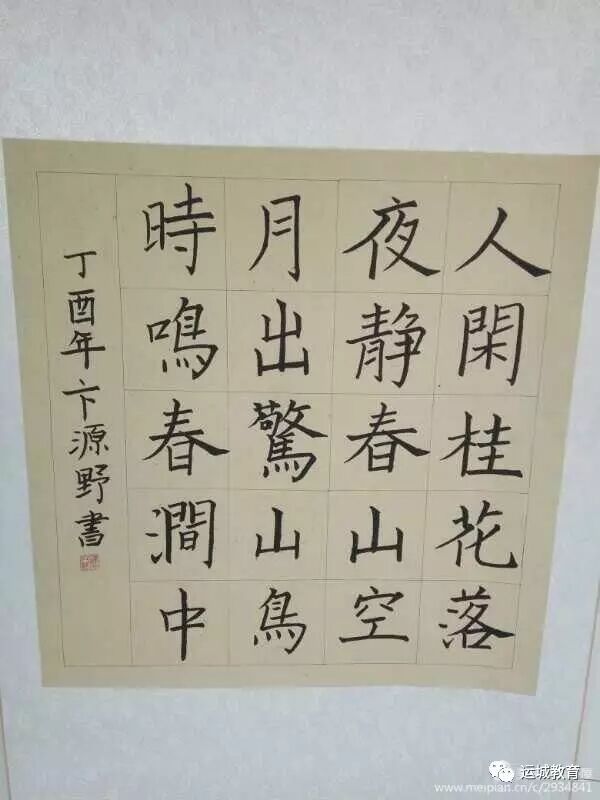 人閑桂花落
夜静春山空
月出驚山鳥
時鳴春澗中
丁酉年卞源野書
运城教育
www.meipian.cn/c/2934841